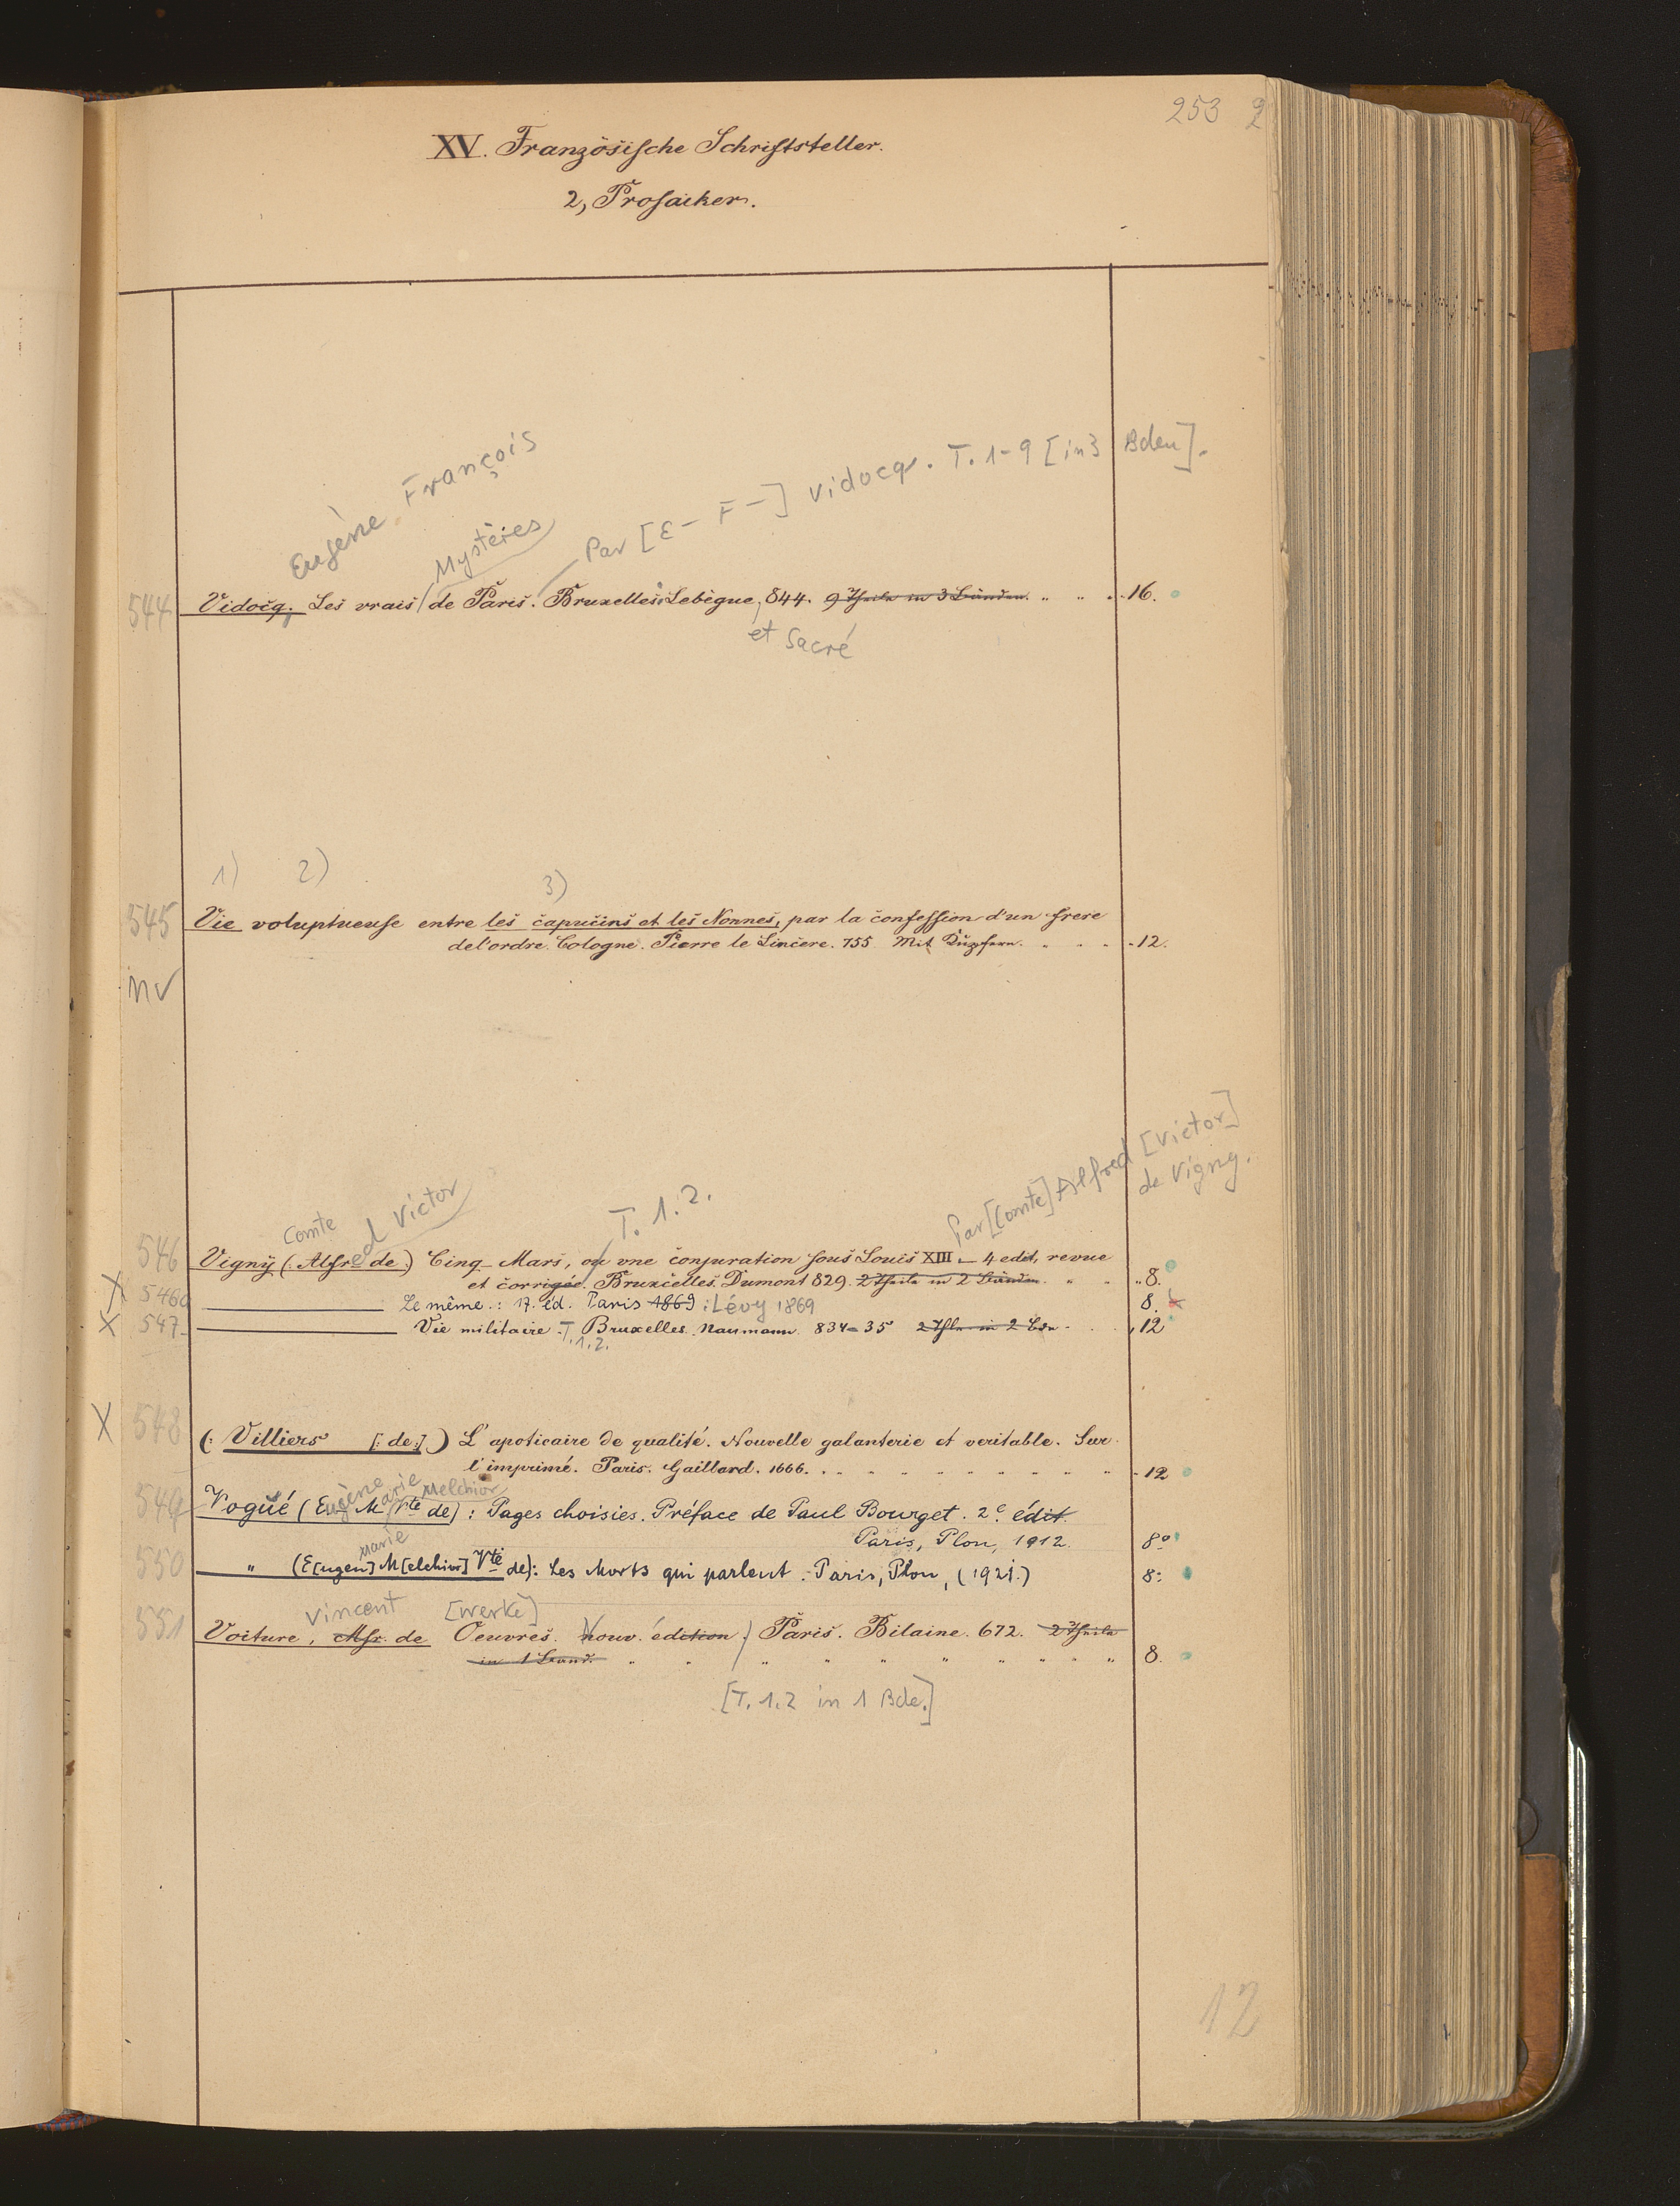 253 2
XV. Französische Schriftsteller.
2, Prosaiker.
Eugène François
Mystères
Par [E- F-] Vidocq. T. 1-9 [in 3 Bden].
544 Vidocq. Les vrais de Paris. Bruxelles. Lebègue, 844. 9 Theile in 3 Bänden. " " . 16.
et Sacré
1) 2) 3)
545 Vie voluptueuse entre les capucins et les Nonnes, par la confession d'un frere
de l'ordre. Cologne. Pierre le Sincere. 755 Mit Kupfern. . . . 12.
nv
Par [Comte] Alfred [Victor]
de Vigny.
Comte Victor T. 1. 2.
546 Vigny (: Alfred de :) Cinq-Mars, ou une conjuration sous Louis XIII - 4 edit, revue
et corrigée. Bruxelles. Dumont 829. 2 Theile in 2 Bänden. " " " 8.
X 546a Le même.: 17. éd. Paris 1869 : Lévy 1869 8.
X 547 Vie militaire. Bruxelles. Naumann. 834-35 2 Thle in 2 Bdn. . . 12
T. 1. 2.
X 548 (: Villiers [: de :] ) L'apoticaire de qualité. Nouvelle galanterie et veritable. Sur
l'imprimé. Paris. Gaillard. 1666. . " " " " " " " " 12
Eugène Marie Melchior
549 Vogüé (Eug M Vte de) : Pages choisies. Préface de Paul Bourget. 2e édit.
Paris, Plon, 1912. 8°
Marie
550 " (E[ugen] M[elchior] Vte de): Les Morts qui parlent. Paris, Plon, (1921.) 8:
Vincent [Werke]
551 Voiture, Msr. de Oeuvres. Nouv. édition. Paris. Bilaine. 672. 2 Theile
in 1 Band. " " " " " " " " " 8.
[T. 1. 2 in 1 Bde.]
12